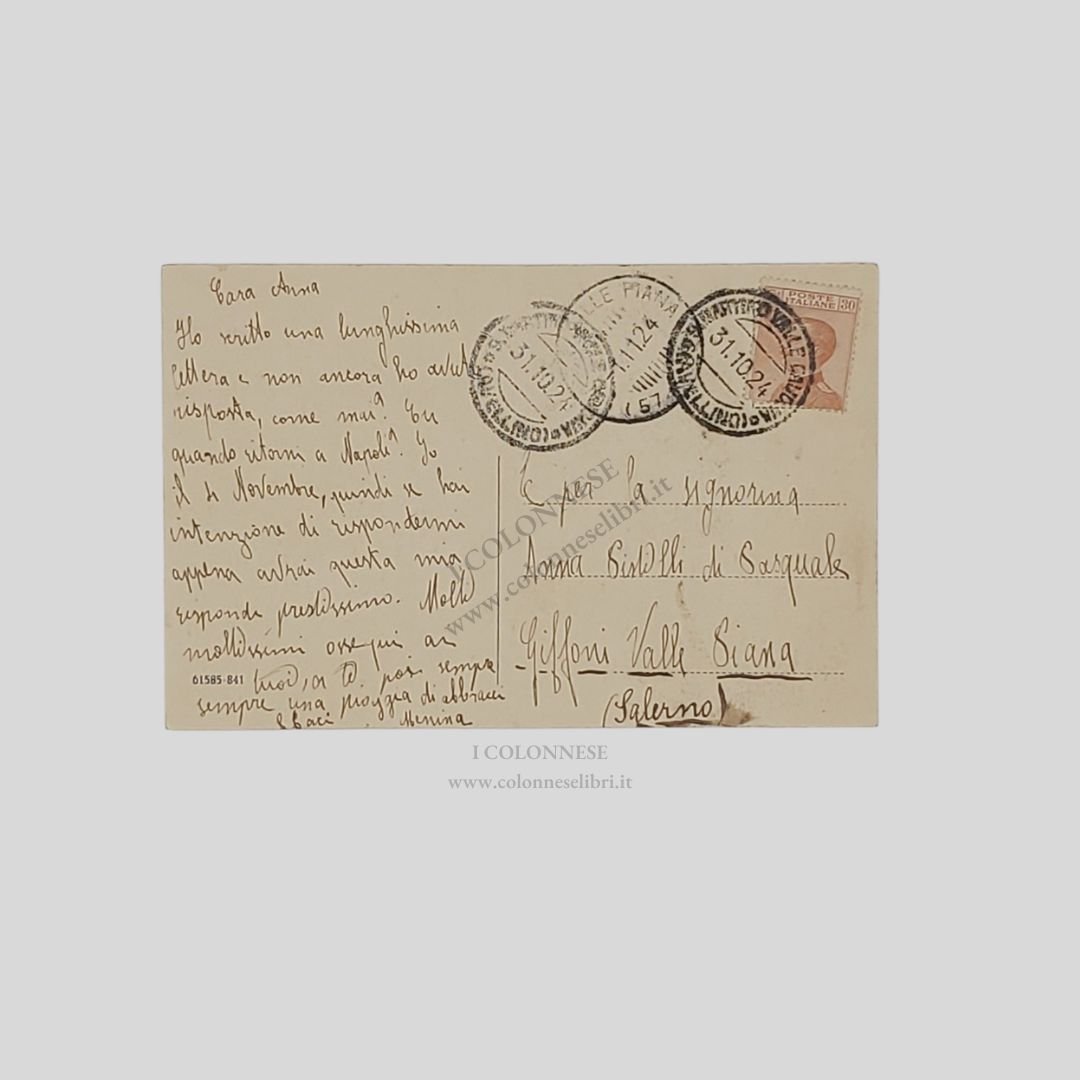 Cara Anna
Ho scritto una lunghissima
lettera e non ancora ho avut
risposta, come mai? Tu
quando ritorni a Napoli? Io
il 4 Novembre, quindi se hai
intenzione di rispondermi
appena avrai questa mia
rispondi prestissimo. Molti
moltissimi ossequi ai
tuoi, a te, poi sempre
sempre una pioggia di abbracci
e baci Menina
61585-841
VALLE PIANA
1.11.24
(57
S. MARTINO VALLE CAUDINA (AVELLINO)
31.10.24
S. MARTINO VALLE CAUDINA (AVELLINO)
31.10.24
POSTE
ITALIANE
30
per la signorina
Anna Pistilli di Pasquale
Giffoni Valle Piana
(Salerno)
I COLONNESE
www.colonneselibri.it
I COLONNESE
www.colonneselibri.it